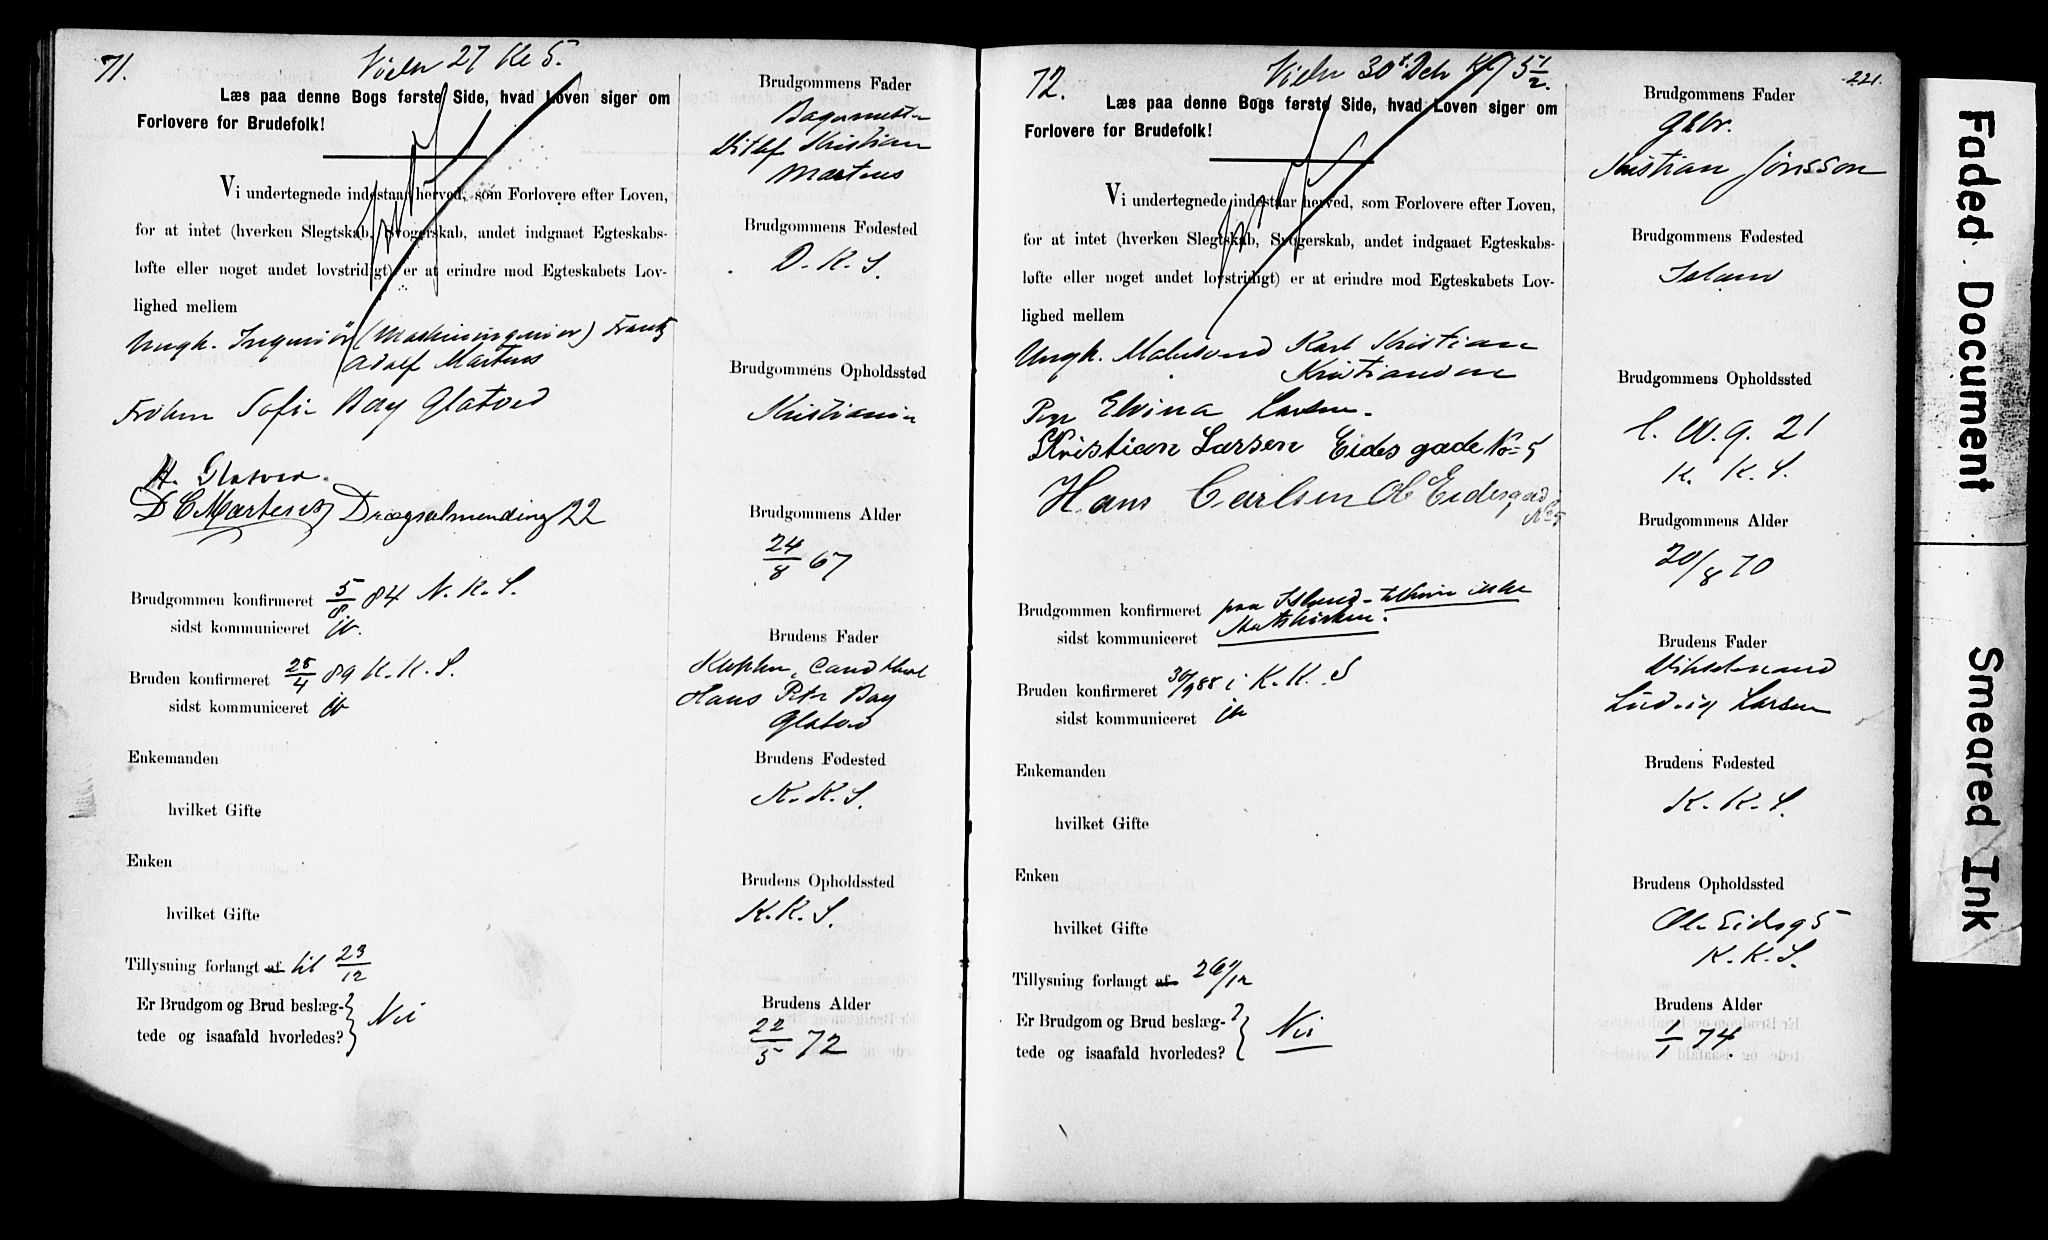 71.
Vielse 27 Kl 5.
Læs paa denne Bogs første Side, hvad Loven siger om
Forlovere for Brudefolk!
Vi undertegnede indestaar herved, som Forlovere efter Loven,
for at intet (hverken Slegtskab, Svogerskab, andet indgaaet Egteskabs-
løfte eller noget andet lovstridigt) er at erindre mod Egteskabets Lov-
lighed mellem
Ungk. Ingeniør (Maskiningeniør) Frantz
Adolf Martens
Frøken Sofie Bay Glatved
H. Glatved.
D C Martens Drægsalmending 22
Brudgommen konfirmeret 5/8 84 N. K. S.
sidst kommuniceret
Bruden konfirmeret 28/4 89 K. K. S.
sidst kommuniceret
Enkemanden
hvilket Gifte
Enken
hvilket Gifte
Tillysning forlangt af til 23/12
Er Brudgom og Brud beslæg-
tede og isaafald hvorledes? } Nei
Brudgommens Fader
Bagermester
Ditlef Kristian
Martens
Brudgommens Fødested
D. K. S.
Brudgommens Opholdssted
Kristiania
Brudgommens Alder
24/8 67
Brudens Fader
Cand
Hans Peter Bay
Glatved
Brudens Fødested
K. K. S.
Brudens Opholdssted
K. K. S.
Brudens Alder
22/5 72
72.
Vielse 30 Kl 5 1/2.
221.
Læs paa denne Bogs første Side, hvad Loven siger om
Forlovere for Brudefolk!
Vi undertegnede indestaar herved, som Forlovere efter Loven,
for at intet (hverken Slegtskab, Svogerskab, andet indgaaet Egteskabs-
løfte eller noget andet lovstridigt) er at erindre mod Egteskabets Lov-
lighed mellem
Ungk. Malersvend Karl Kristian
Kristiansen
Pge Elvina Larsen.
Kristian Larsen Eides gade No 5
Hans Carlsen Ol Eidesgad
No 5
Brudgommen konfirmeret paa Island - tilhører ikke
sidst kommuniceret Statskirken.
Bruden konfirmeret 30/9 88 i K. K. S
sidst kommuniceret
Enkemanden
hvilket Gifte
Enken
hvilket Gifte
Tillysning forlangt af 26/12
Er Brudgom og Brud beslæg-
tede og isaafald hvorledes? } Nei
Brudgommens Fader
Gbr.
Kristian Jónsson
Brudgommens Fødested
Island
Brudgommens Opholdssted
C. W. g. 21
K. K. S.
Brudgommens Alder
20/8 70
Brudens Fader
Ludvig Larsen
Brudens Fødested
K. K. S.
Brudens Opholdssted
Ole Eidsg 5
K. K. S.
Brudens Alder
1/1 74.
Faded Document
Smeared Ink